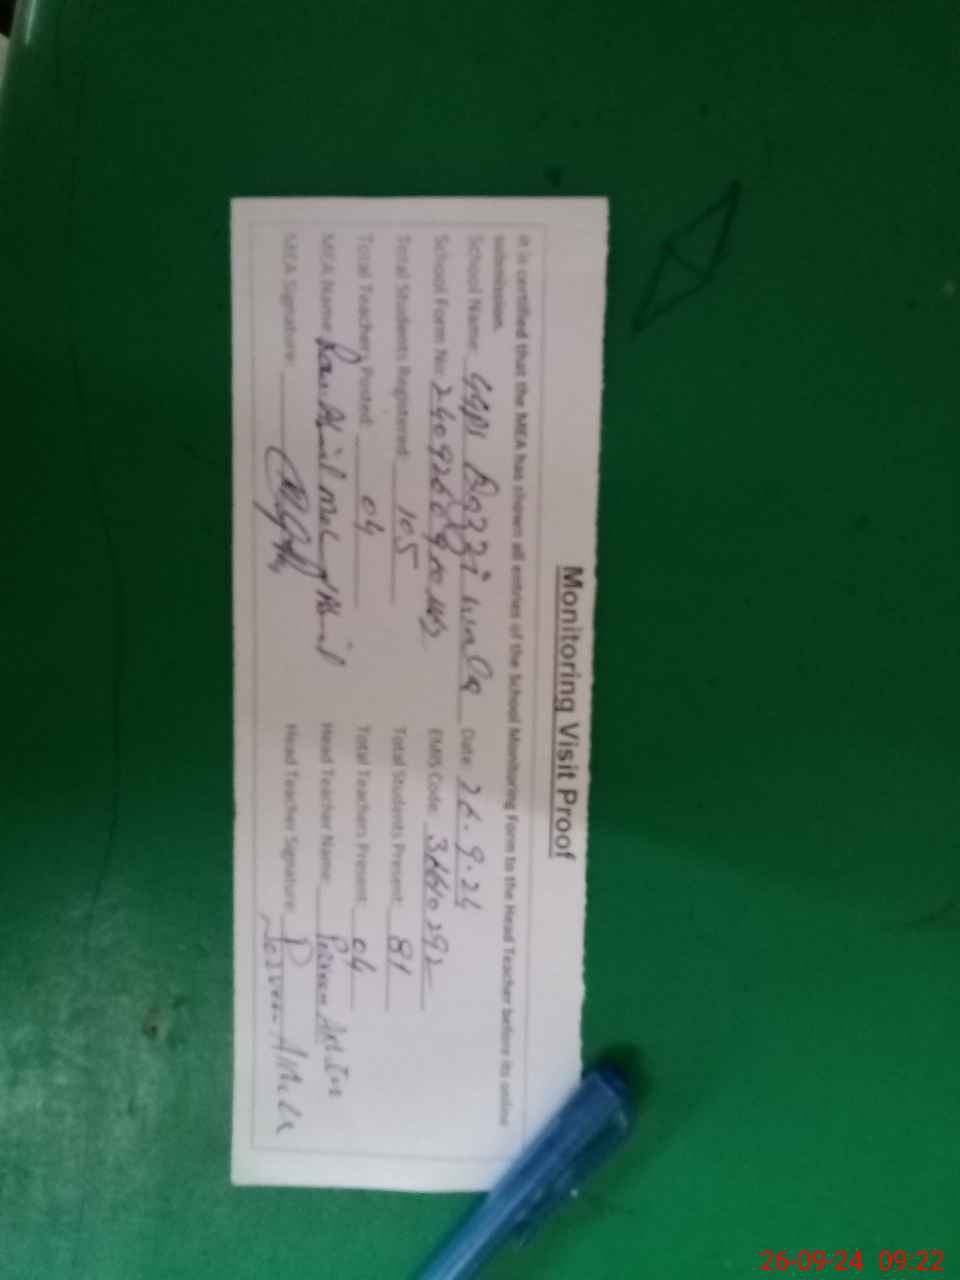 Monitoring Visit Proof
It is certified that the MEA has shown all entries of the School Monitoring Form to the Head Teacher before its online
submission.
School Name: GGPS Qazzi wala Date: 26.9.24
School Form No: EMIS Code:
Total Students Registered: 105 Total Students Present: 81
Total Teachers Posted: 04 Total Teachers Present: 04
MEA Name: Head Teacher Name: Parveen Akhtar
MEA Signature: Head Teacher Signature:
26-09-24 09:22